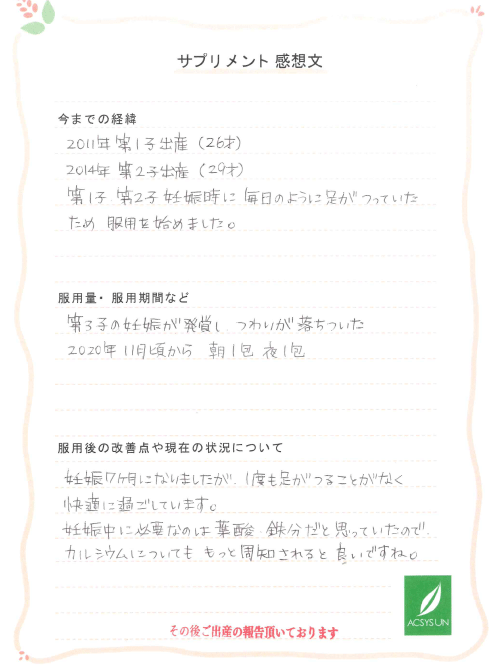 サプリメント 感想文
今までの経緯
2011年 第1子出産（26才）
2014年 第2子出産（29才）
第1子 第2子 妊娠時に 毎日のように足が つっていた
ため 服用を始めました。
服用量・服用期間など
第3子の妊娠が発覚し つわりが落ちついた
2020年11月頃から 朝1包 夜1包
服用後の改善点や現在の状況について
妊娠7ヶ月になりましたが、1度も足がつることがなく
快適に過ごしています。
妊娠中に必要なのは葉酸・鉄分だと思っていたので、
カルシウムについても もっと周知されると良いですね。
ACSYSUN
その後ご出産の報告頂いております